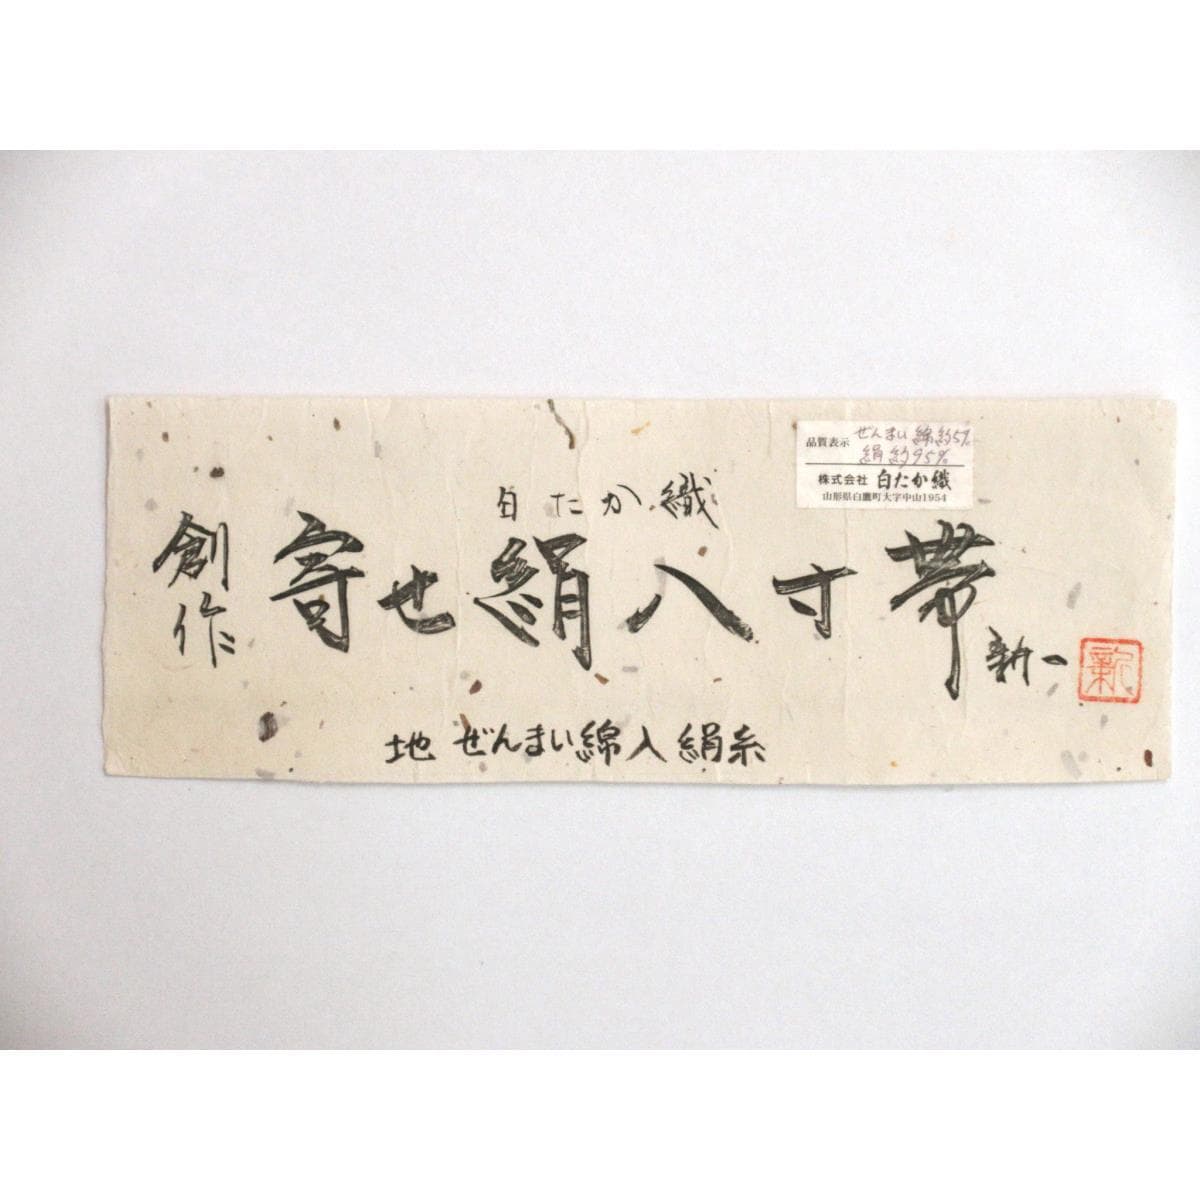 品質表示 ぜんまい綿約5%
絹約95%
株式会社 白たか織
山形県白鷹町大字中山1954
白たか織
創作
寄せ絹八寸帯
新一
新
地 ぜんまい綿入絹糸